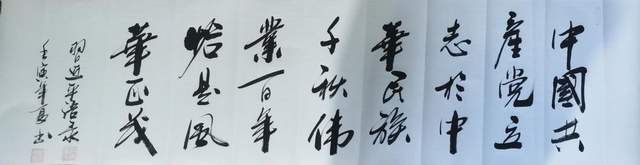 中國共
產党立
志於中
華民族
千秋伟
業百年
恰是風
華正茂
習近平语录
壬寅年夏书